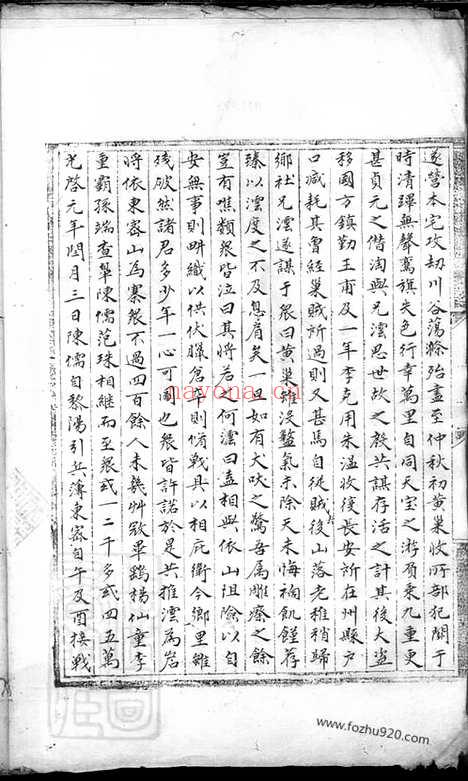 遂營本宅攻刼川谷蕩滌殆盡至仲秋初黄巢收所部犯闕于
時清蹕無聲鸞旗失色行幸萬里自同天寶之游須乘九重更
甚貞元之僭淘與兄澐思世故之教共謀存活之計其後大盗
移國方鎮勤王甫及一年李克用朱温收復長安所在州縣户
口減耗其曾經巢賊所過則又甚焉自從賊後山落老稚稍歸
鄉社兄澐遂謀于衆曰黄巢雖没盤氣未除天未悔禍飢饉荐
臻以澐度之不及息肩矣一旦如有犬吠之驚吾属雕瘵之餘
豈有噍類衆皆泣曰其將若之何澐曰盍相與依山阻險以自
安無事則耕織以供伏臘急卒則脩戰具以相庇衛今鄉里雖
殘破然諸君多少年一心可圖也衆皆許諾於是共推澐為岩
將依東密山為寨衆不過四百餘人未幾艸寇畢鷂楊仙童李
重霸孫端查皋陳儒范珠相継而至衆或一二千多或四五萬
光啓元年閏月三日陳儒自黎陽引兵薄東密自午及酉接戰
nayona.cn
www.fozhu920.com